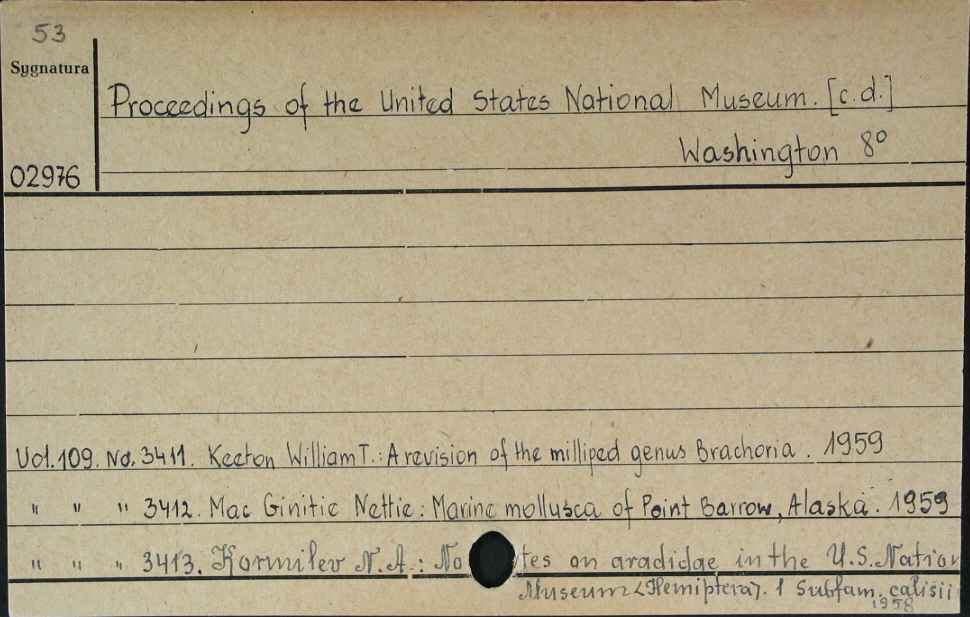 53
Sygnatura
Proceedings of the United States National Museum. [c.d.]
Washington 8°
02976
Vol. 109. No. 3411. Keeton William T.: A revision of the milliped genus Brachoria. 1959
" " " 3412. Mac Ginitie Nettie: Marine mollusca of Point Barrow, Alaska. 1959
" " " 3413. Kormilev N.A.: No tes on aradidae in the U.S. Nation
Museum <Hemiptera>. 1 Subfam. calisii
1958